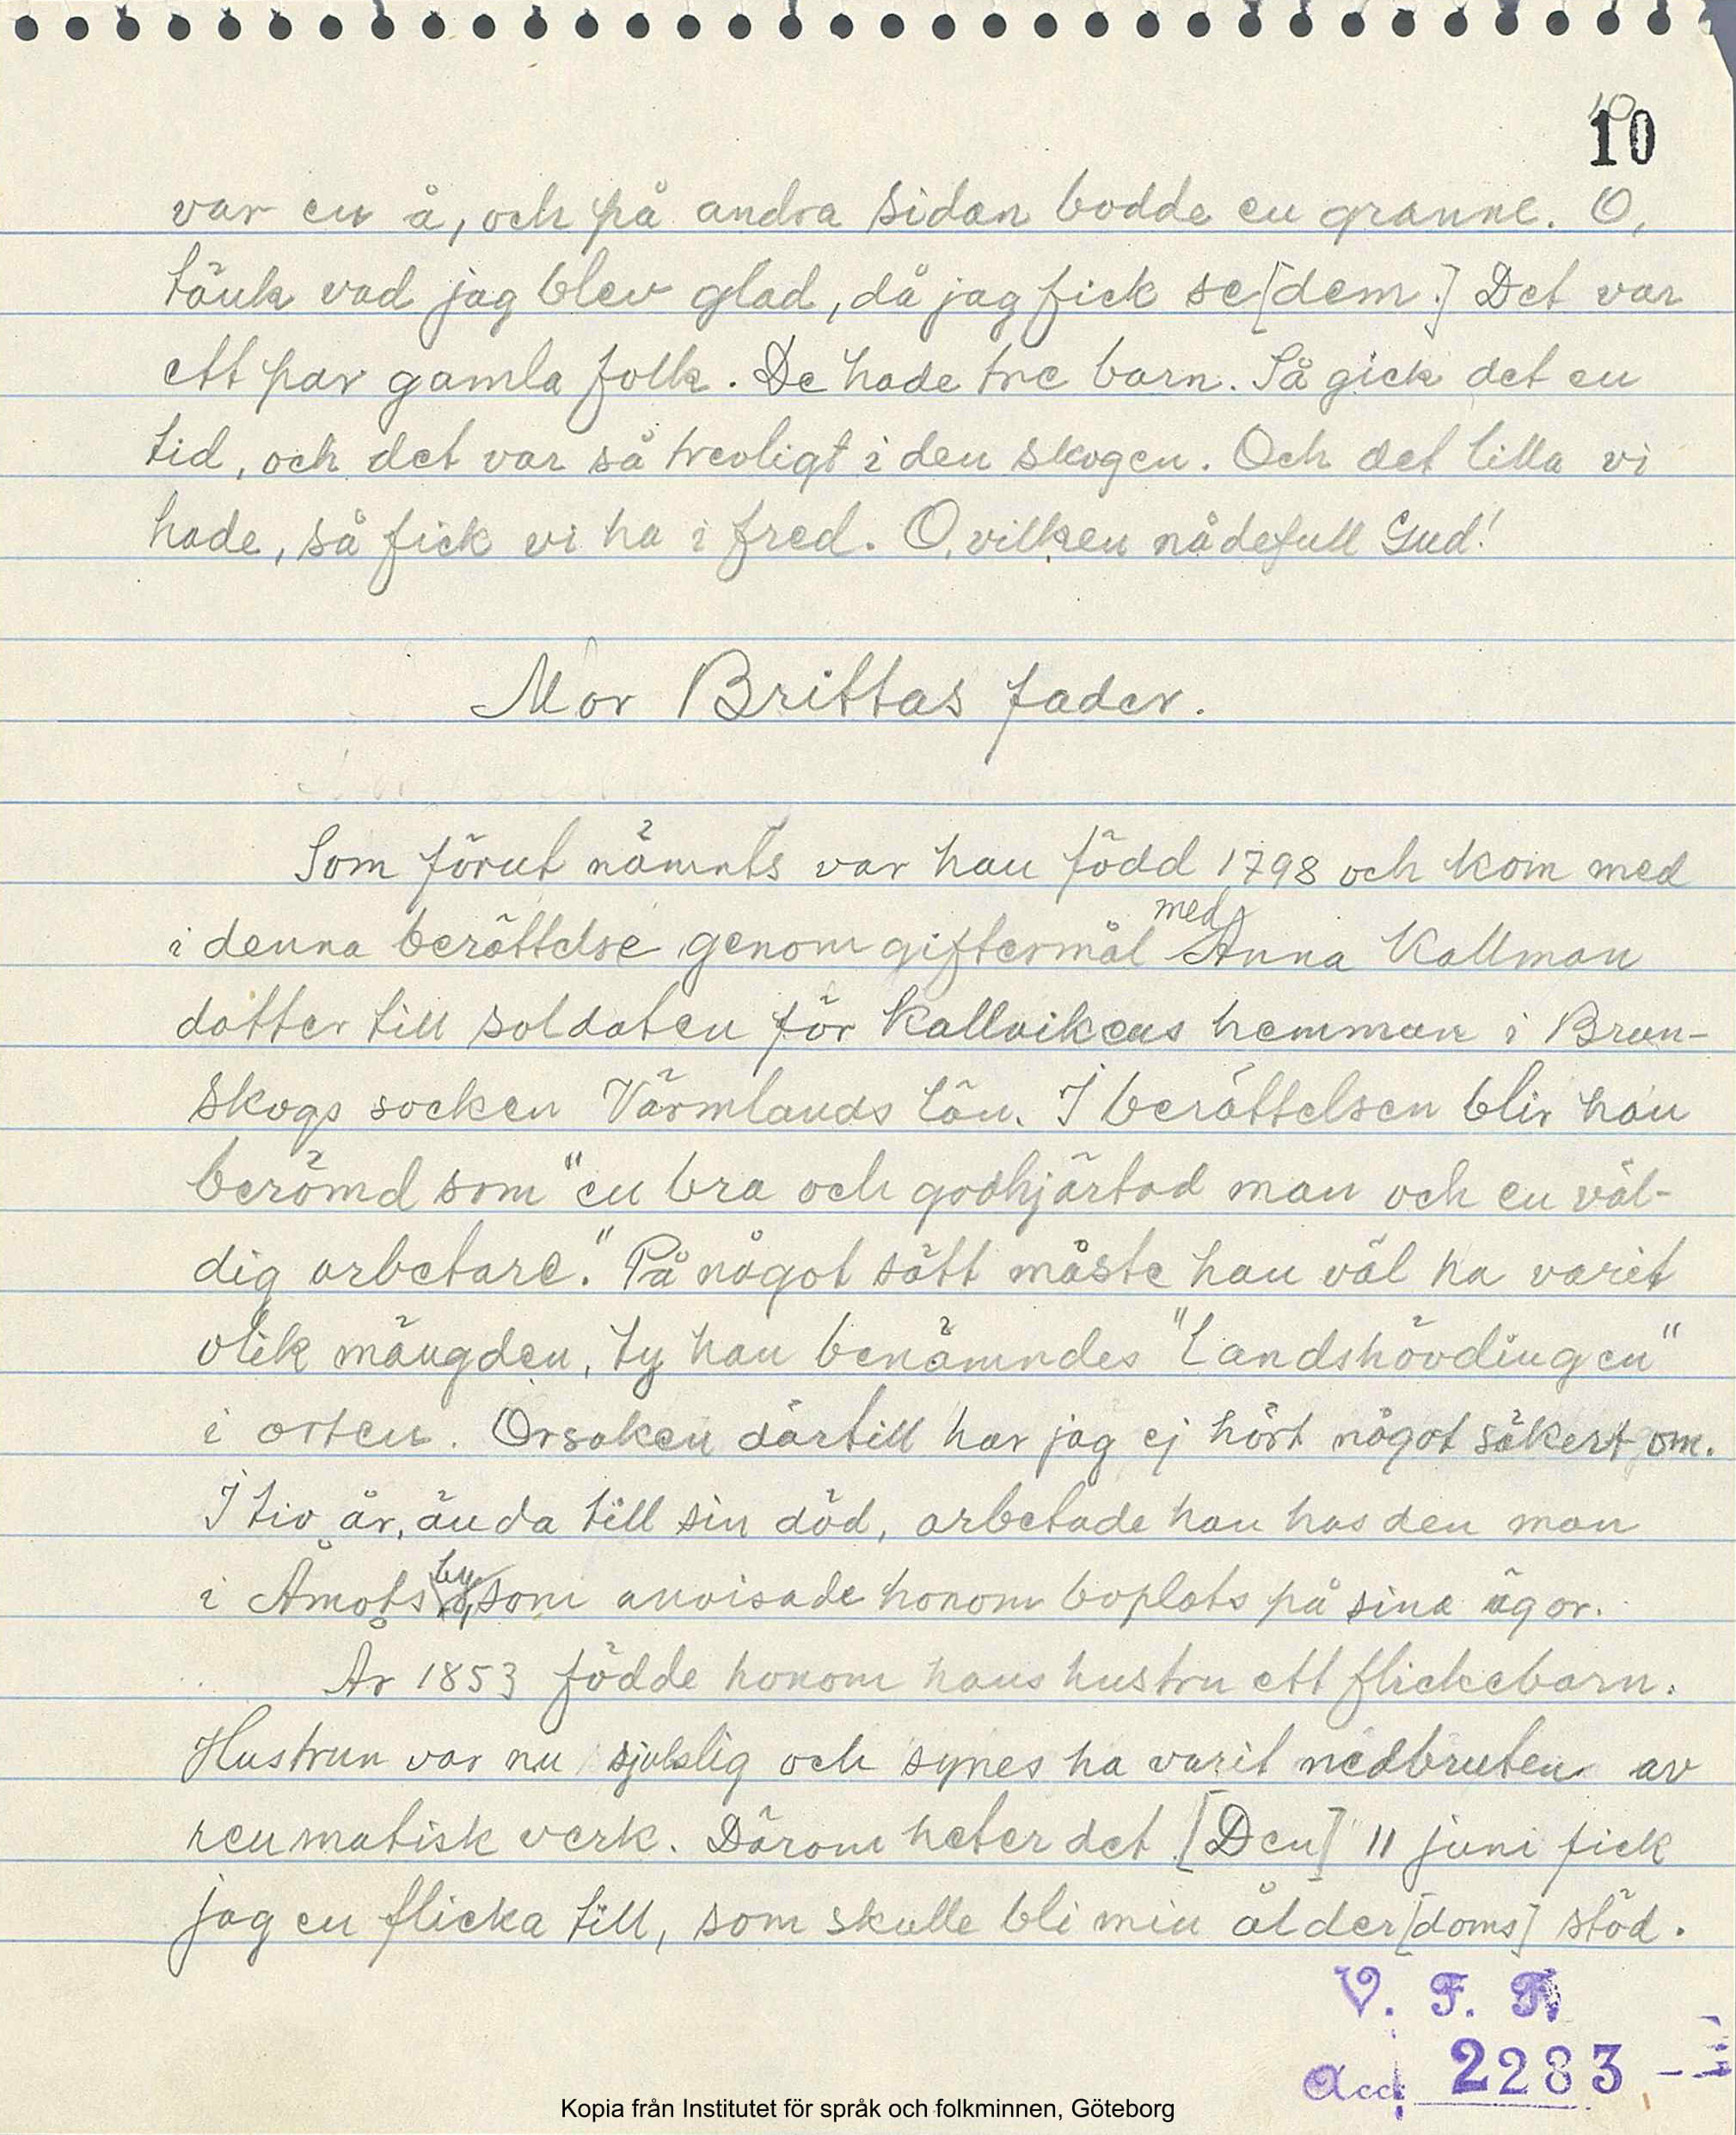 10
10
var en å, och på andra sidan bodde en granne. O,
tänk vad jag blev glad, då jag fick se [dem.] Det var
ett par gamla folk. De hade tre barn. Så gick det en
tid, och det var så trevligt i den skogen. Och det lilla vi
hade, så fick vi ha i fred. O, vilken nådefull Gud!
Mor Brittas fader.
Som förut nämnts var han född 1798 och kom med
i denna berättelse genom giftermål med Anna Kallman
dotter till soldaten för Kallvikens hemman i Brun-
skogs socken Värmlands län. I berättelsen blir han
berömd som "en bra och godhjärtad man och en väl-
dig arbetare." På något sätt måste han väl ha varit
olik mängden, ty han benämndes "Landshövdingen"
i orten. Orsaken därtill har jag ej hört något säkert om.
I tio år, ända till sin död, arbetade han hos den man
i Åmots by, som anvisade honom boplats på sina ägor.
År 1853 födde honom hans hustru ett flickebarn.
Hustrun var nu sjuklig och synes ha varit nedbruten av
reumatisk verk. Därom heter det [Den] 11 juni fick
jag en flicka till, som skulle bli min ålder[doms] stöd.
V. F. R
Acc. 2283
Kopia från Institutet för språk och folkminnen, Göteborg